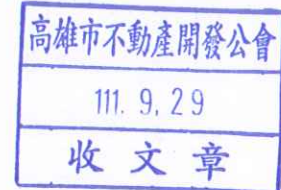 高雄市不動產開發公會
111. 9. 29
收文章